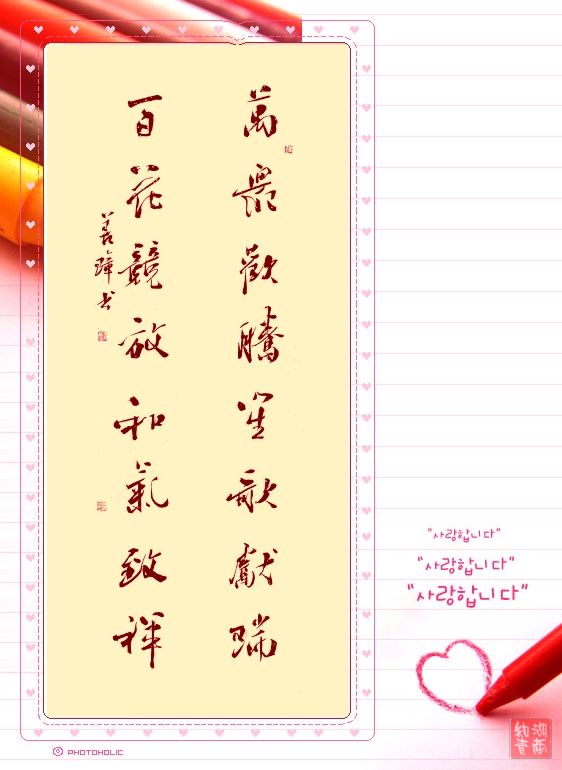 萬衆歡騰笙歌獻瑞
百花競放和氣致祥
"사랑합니다"
"사랑합니다"
"사랑합니다"
PHOTOHOLIC